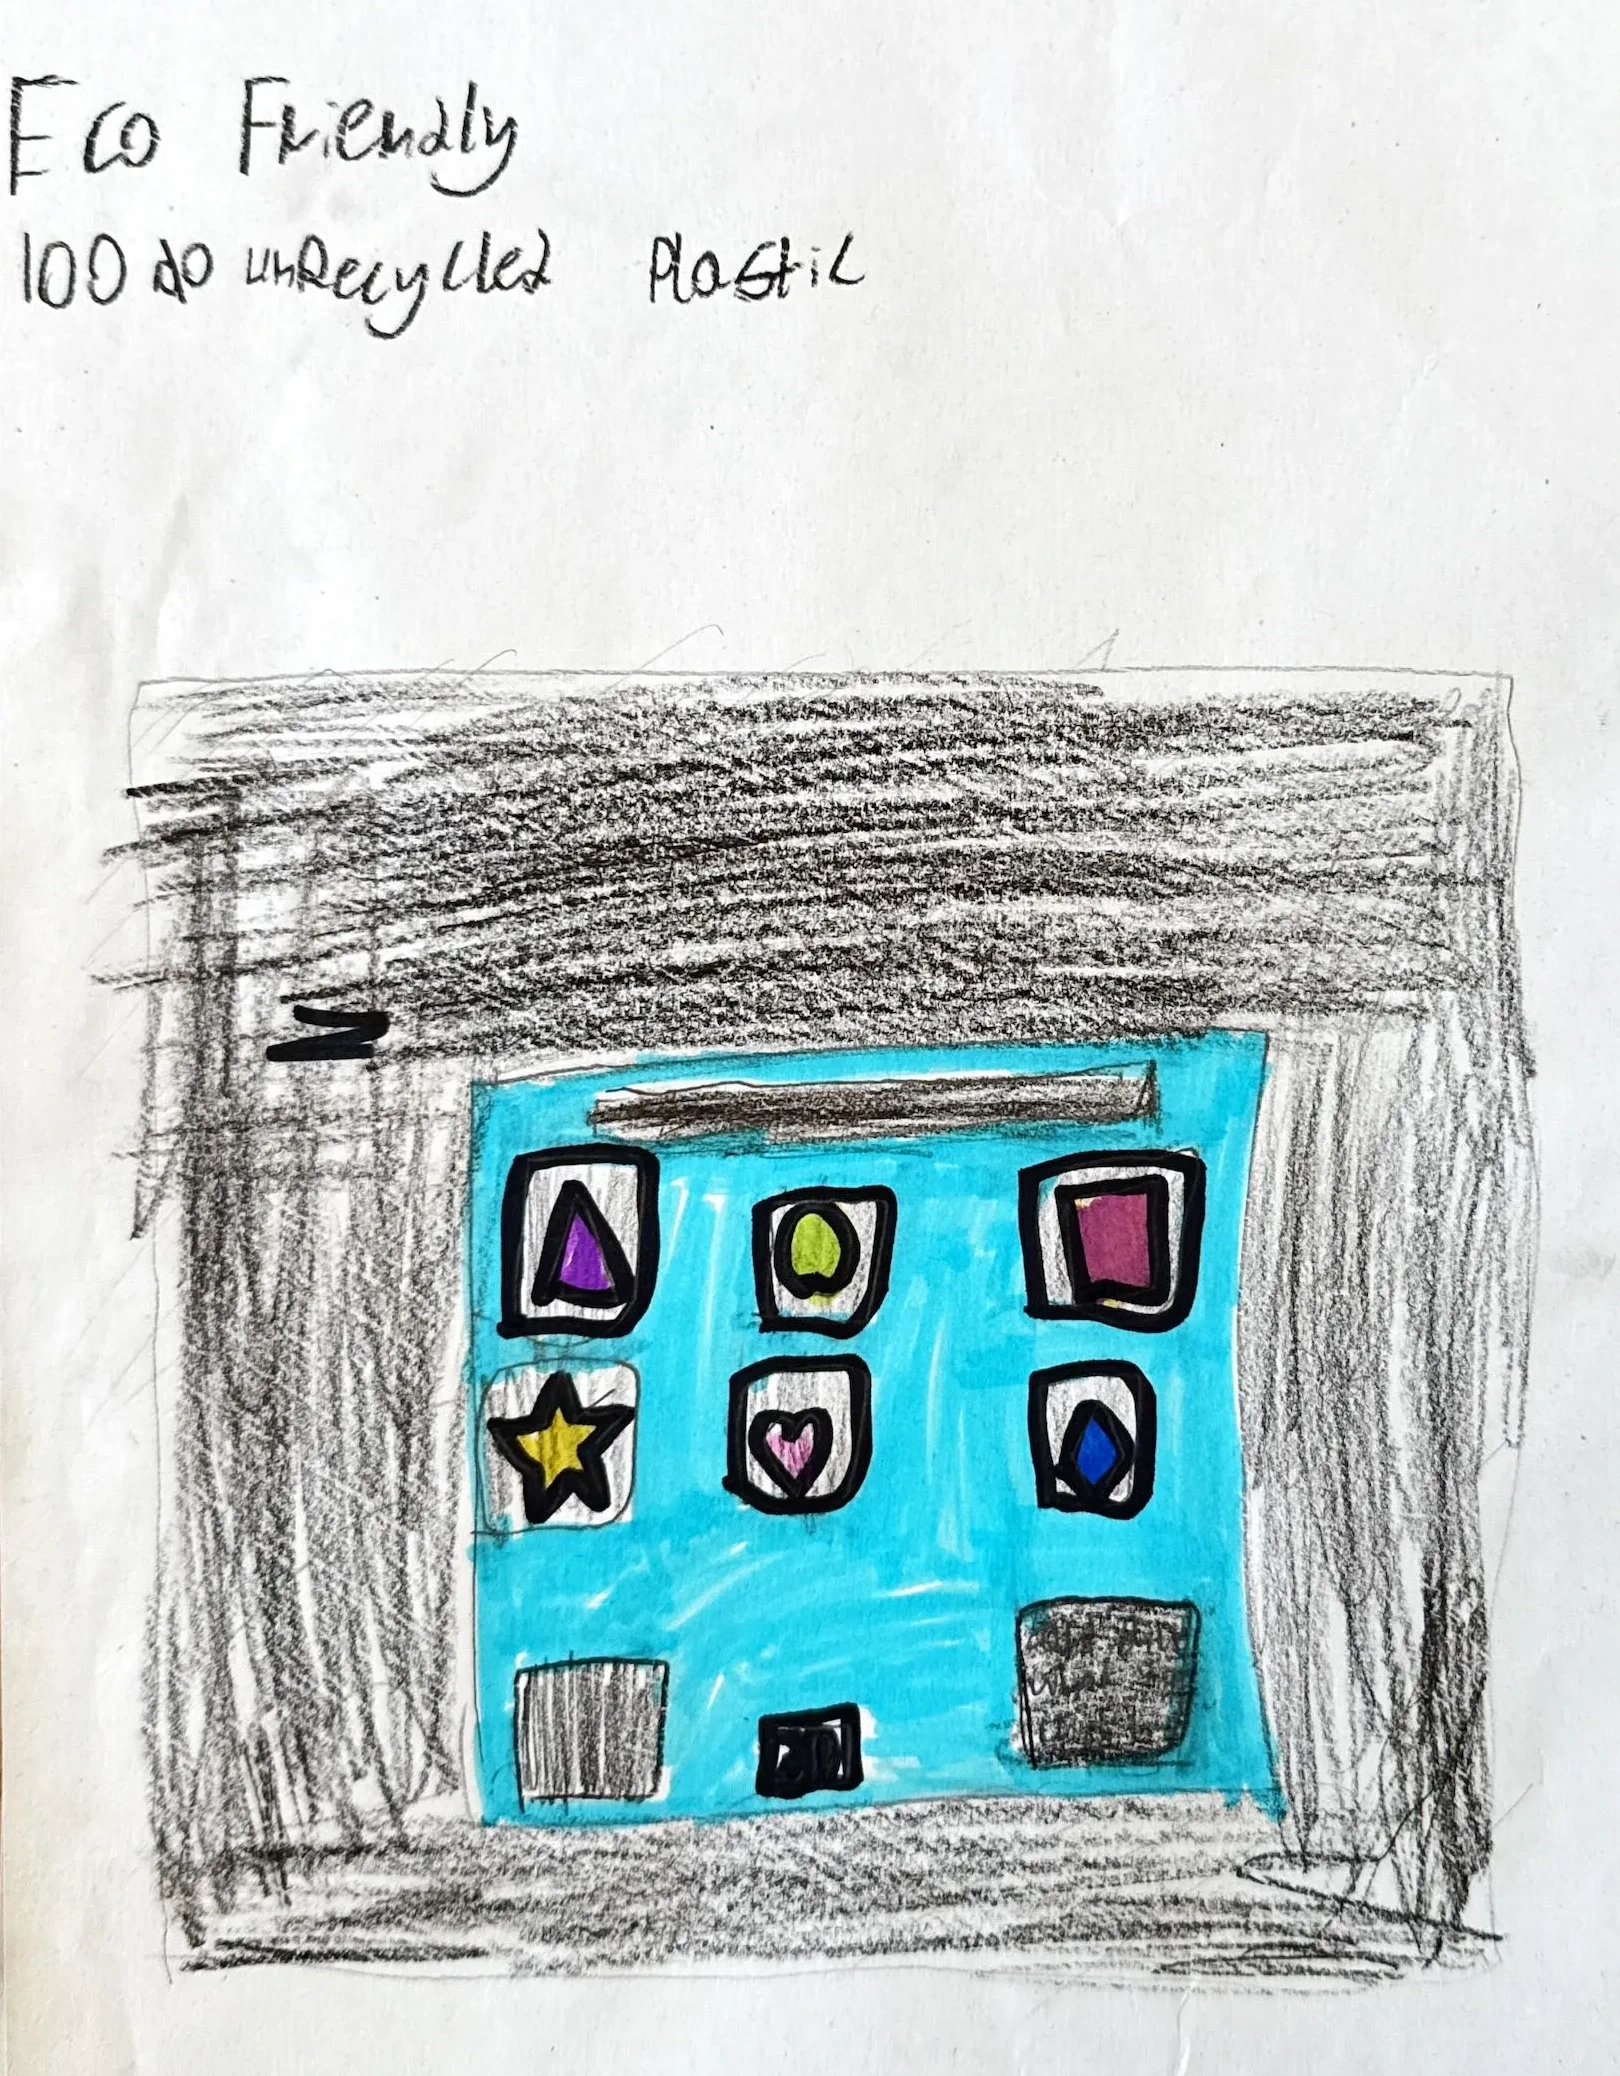 Eco Friendly
100 do unRecycled Plastic